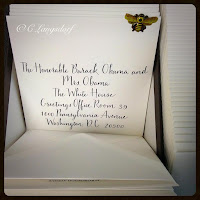 @ C. Langsdorf
The Honorable Barack Obama and
Mrs Obama
The White House
Greetings Office Room 39
1600 Pennsylvania Avenue
Washington, D.C. 20500